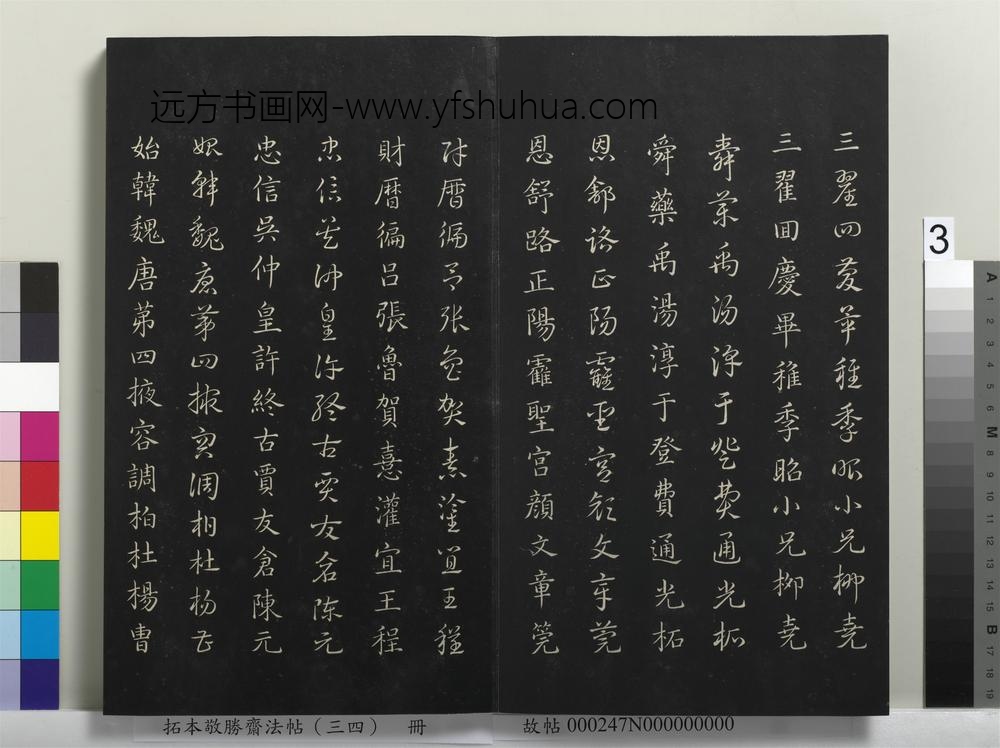 远方书画网-www.yfshuhua.com
三翟回慶畢稚季昭小兄柳堯
三翟回慶畢稚季昭小兄柳堯
舜藥禹湯淳于登費通光柘
舜藥禹湯淳于登費通光柘
恩舒路正陽靃聖宮顏文章筦
恩舒路正陽靃聖宮顏文章筦
財曆偏呂張魯賀憙灌宜王程
財曆偏呂張魯賀憙灌宜王程
忠信吳仲皇許終古賈友倉陳元
忠信吳仲皇許終古賈友倉陳元
始韓魏唐苐四掖容調柏杜楊曹
始韓魏唐苐四掖容調柏杜楊曹
拓本敬勝齋法帖（三四） 冊
故帖 000247N000000000
3
A 1 2 3 4 5 6 M 8 9 10 11 12 13 14 15 B 17 18 19